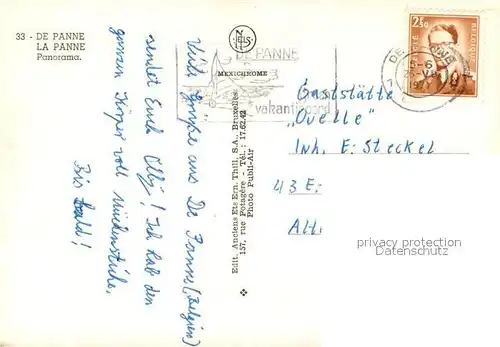 33 - DE PANNE
LA PANNE
Panorama.
NELS
MEXICHROME
DE PANNE
vakantieoord
2F50
BELGIQUE
Viele Grüße aus De Panne (Belgien)
sendet Euch Olly! Ich hab den
ganzen Körper voll Mückenstiche.
Bis bald!
Edit. Anciens Ets Ern. Thill, S.A., Bruxelles
157, rue Potagère - Tél.: 17.62.42
Photo Publi-Air
Gaststätte
"Quelle"
Inh. E. Steckel
43 E.
Alt.
privacy protection
Datenschutz